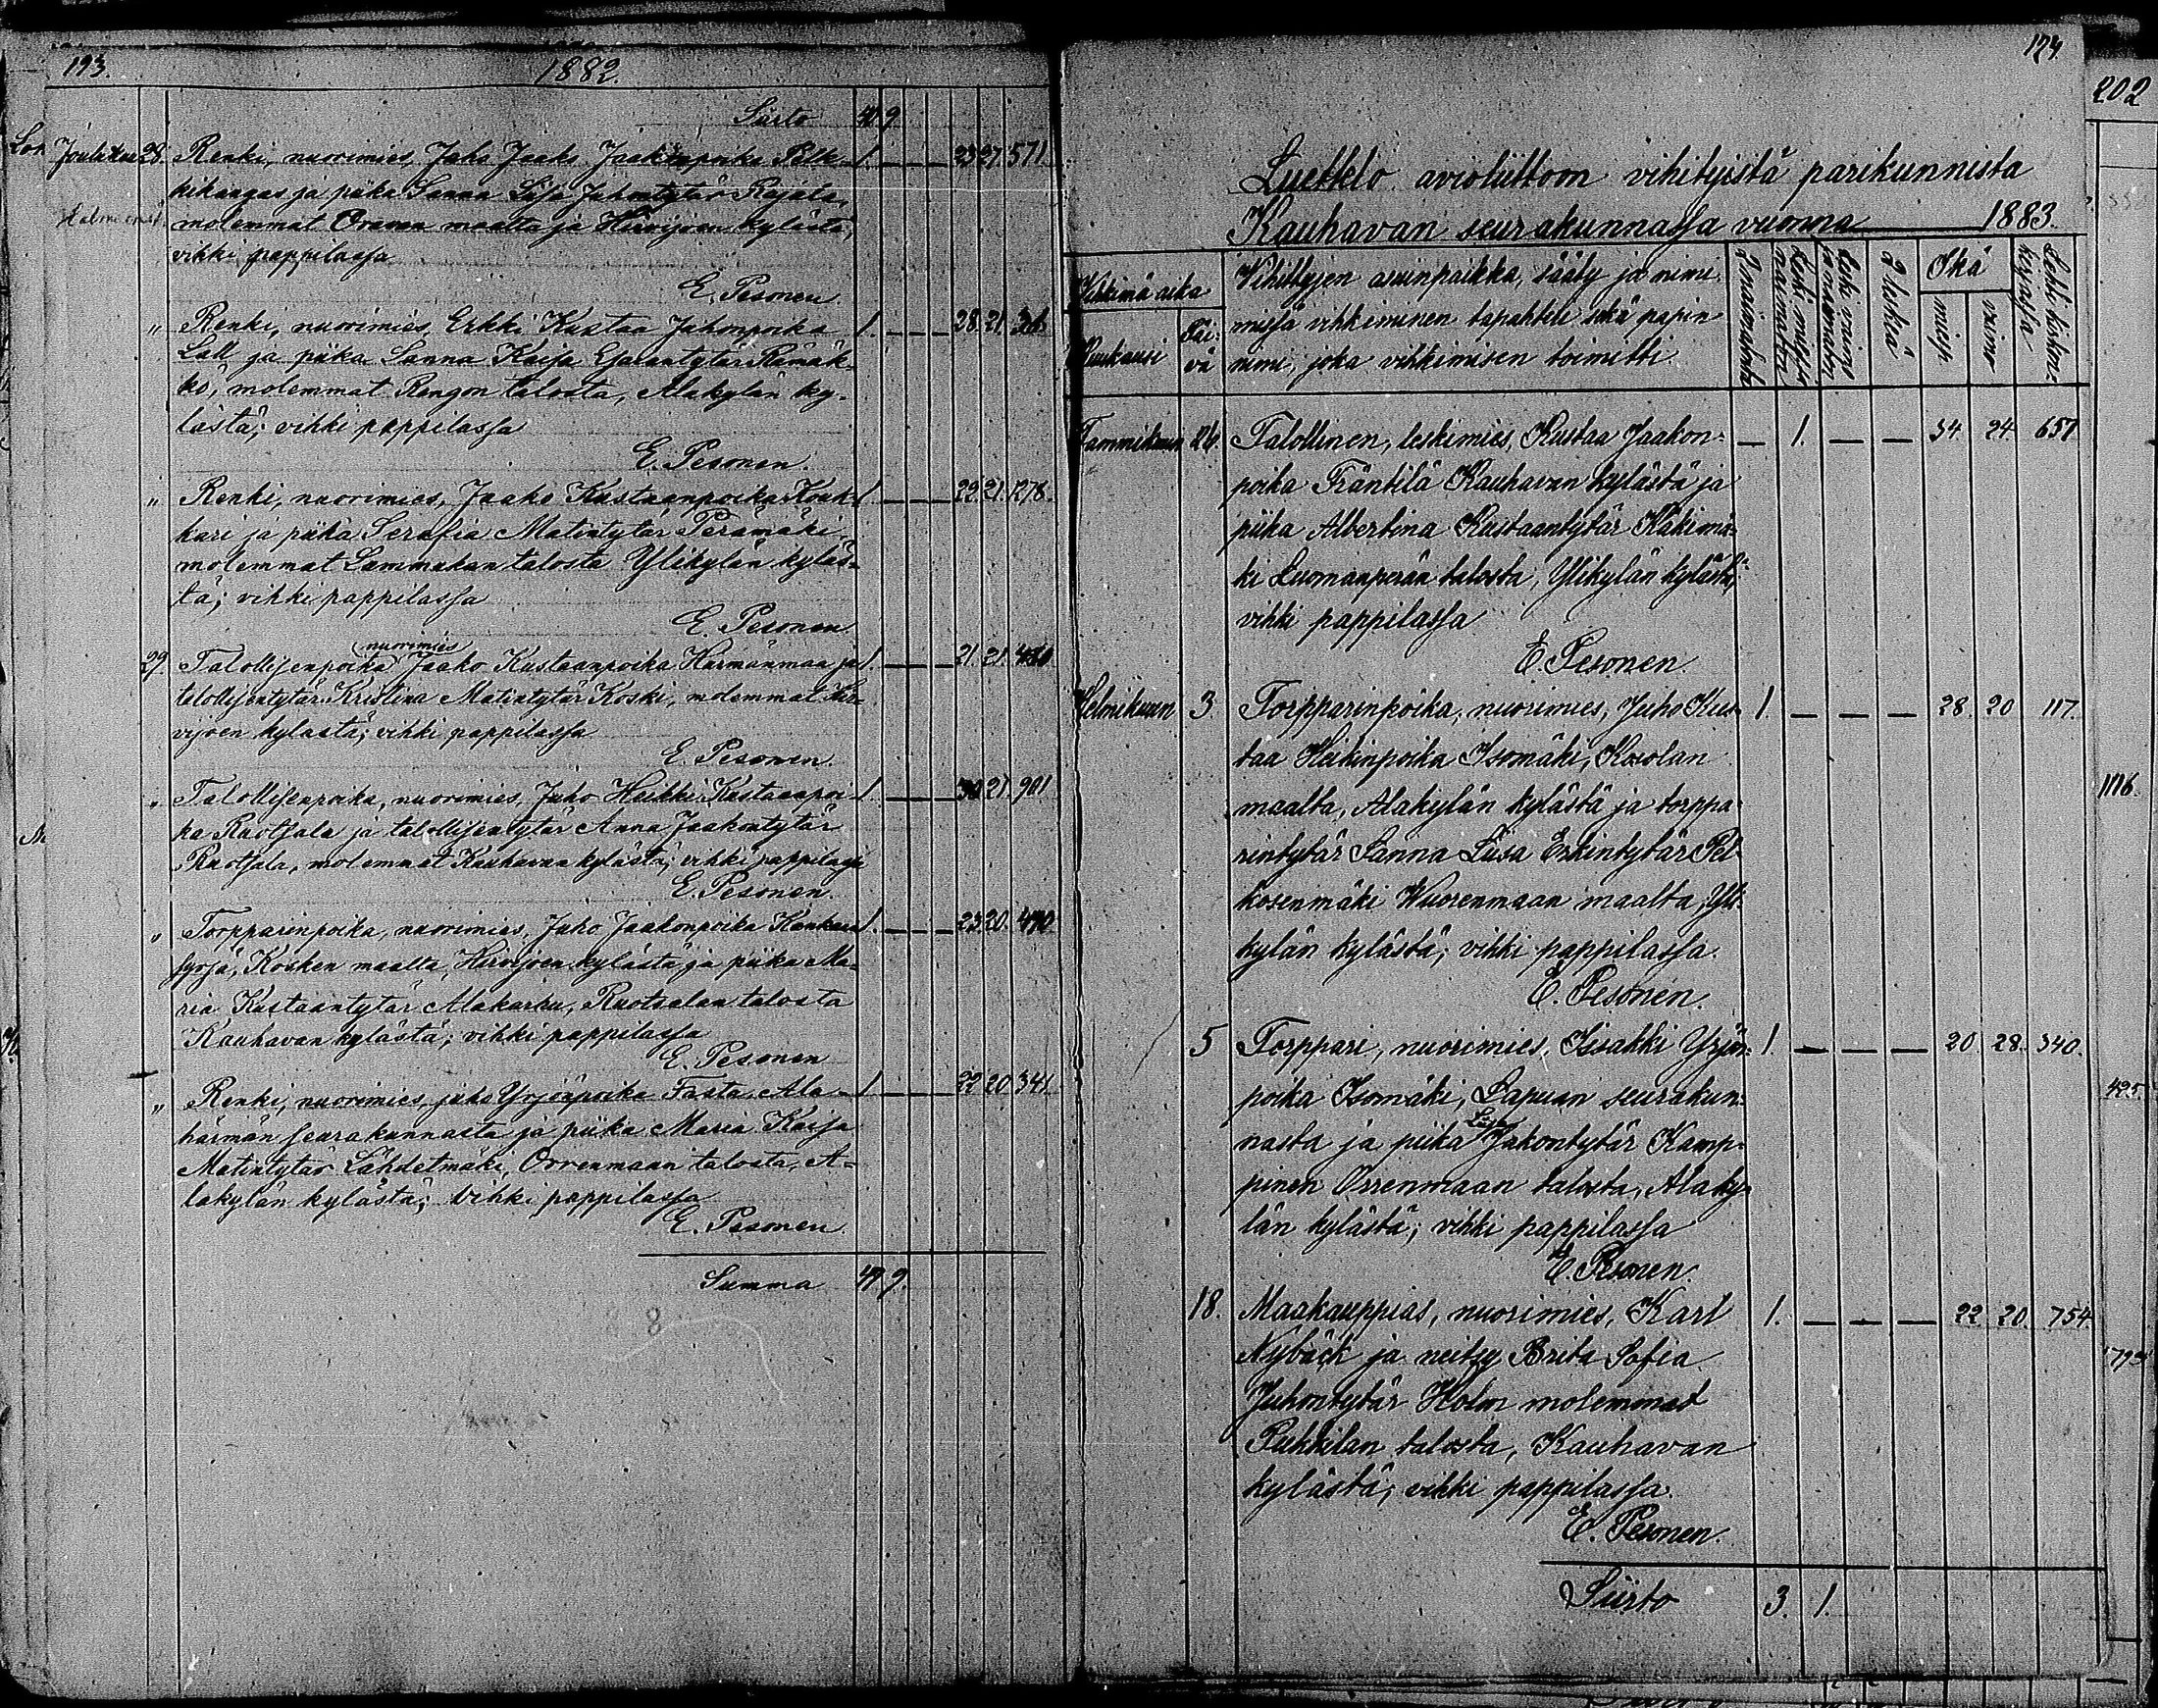 193.
1882.
Siirto 40 9
Joulukuu 28. Renki, nuorimies, Juho Jaako Jaakonpoika Pelk- 1. — — — 23 27. 571
kikangas ja piika Sanna Liisa Juhontytär Rajala,
molemmat Oravan maalta ja Hirvijoen kylästä,
vihki pappilassa
E. Pesonen.
" Renki, nuorimies, Erkki Kustaa Juhonpoika 1. — — — 28. 21.
Lall ja piika Sanna Kaisa Esaiantytär Rämäk-
kö, molemmat Rengon talosta, Alakylän ky-
lästä; vihki pappilassa
E. Pesonen.
" Renki, nuorimies, Jaako Kustaanpoika Kouk- 1. — — — 22. 21. 1278.
kari ja piika Serafia Matintytär Perämäki
molemmat Lammakan talosta Ylikylän kyläs-
tä; vihki pappilassa
E. Pesonen
nuorimies
29. Talollisenpoika Jaako Kustaanpoika Härmänmaa ja 1. — — — 21. 21.
talollisentytär Kristina Matintytär Koski, molemmat Hir-
vijoen kylästä; vihki pappilassa
E. Pesonen.
" Talollisenpoika, nuorimies, Juho Heikki Kustaanpoi- 1. — — — 30 21. 901
ka Ruotsala ja talollisentytär Anna Jaakontytär
Ruotsala, molemmat Kauhavan kylästä; vihki pappilassa
E. Pesonen.
" Torpparinpoika, nuorimies, Juho Jaakonpoika Kankaan 1. — — — 23 20. 470
syrjä, Kosken maalta, Hirvijoen kylästä ja piika Ma-
ria Kustaantytär Alakarhu, Ruotsalan talosta
Kauhavan kylästä; vihki pappilassa
E. Pesonen
" Renki, nuorimies, juho Yrjönpoika Fasta, Ala- 1. — — — 22 20. 341.
härmän seurakunnasta ja piika Maria Kaisa
Matintytär Lähdetmäki, Orrenmaan talosta, A-
lakylän kylästä; vihki pappilassa
E. Pesonen.
Summa 47 9.
8
174.
Luettelo avioliittoon vihityistä parikunnista
Kauhavan seurakunnassa vuonna 1883.
Vihkimä aika
Kuukausi
Päi-
vä
Vihittyjen asuinpaikka, sääty ja nimi
missä vihkiminen tapahtui sekä papin
nimi, joka vihkimisen toimitti.
2 naimatonta
Leski mies ja
naimaton
Leski vaimo
ja naimaton
2 leskeä
Ikä
mies
vaimo
Lehti kirkon-
kirjassa
Tammikuun 26. Talollinen, leskimies, Kustaa Jaakon- — 1. — — 34. 24. 657
poika Fräntilä Kauhavan kylästä ja
piika Albertina Kustaantytär Käkimä-
ki Luomanperän talosta, Ylikylän kylästä;
vihki pappilassa
E. Pesonen.
Helmikuun 3. Torpparinpoika, nuorimies, Juho Kus- 1. — — — 28. 20 117.
taa Heikinpoika Isomäki, Kosolan
maalta, Alakylän kylästä ja torppa-
rintytär Sanna Liisa Erkintytär Pel-
kosenmäki Wuorenmaan maalta, Yli-
kylän kylästä; vihki pappilassa.
E. Pesonen.
5 Torppari, nuorimies, Iisakki Yrjön- 1. — — — 20. 28. 340.
poika Isomäki, Lapuan seurakun-
Liisa
nasta ja piika Jakontytär Kamp-
pinen Orrenmaan talosta, Alaky-
län kylästä; vihki pappilassa
E. Pesonen.
18. Maakauppias, nuorimies, Karl 1. — — — 22 20. 754.
Nybäck ja neitsy Brita Sofia
Juhontytär Holm molemmat
Puhkilan talosta, Kauhavan
kylästä; vihki pappilassa.
E. Pesonen.
Siirto 3. 1.
202
1176.
425.